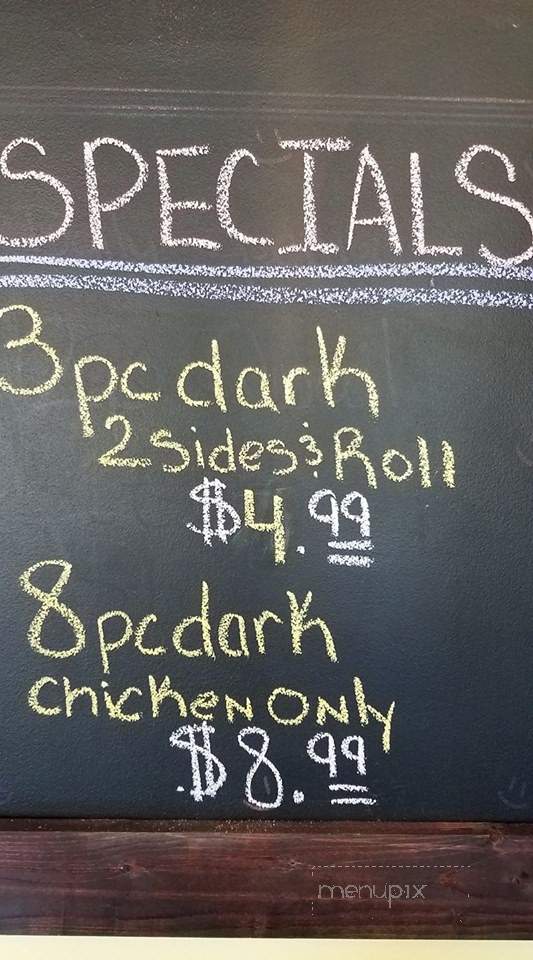 SPECIALS
3pc dark
2 Sides & Roll
$4.99
8pc dark
chicken ONly
$8.99
menupix